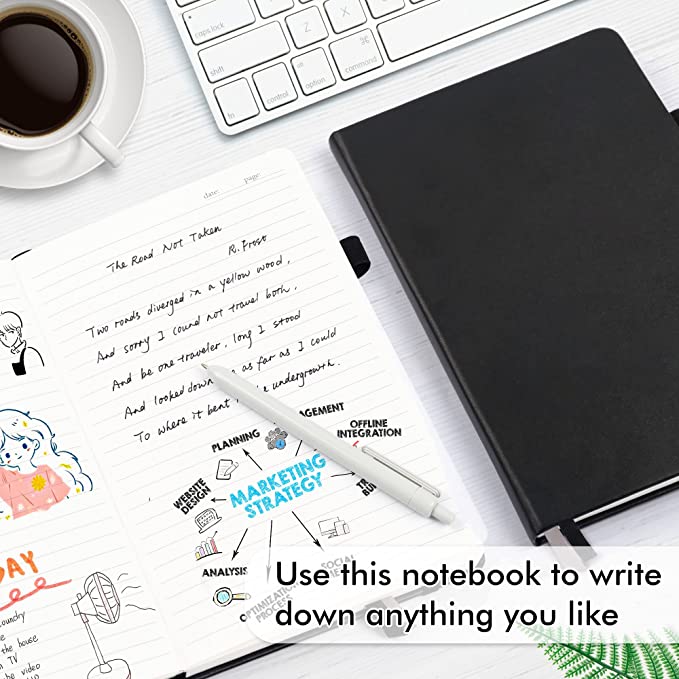 caps lock
shift
fn
control
option
command
⌘
Z
X
date: page:
The Road Not Taken
R. Frost
Two roads diverged in a yellow wood,
And sorry I cound not travel both,
And be one traveler, long I stood
And looked as far as I could
To where it bent the undergrowth.
PLANNING
OFFLINE
INTEGRATION
MARKETING
STRATEGY
WEBSITE
DESIGN
ANALYSIS
SOCIAL
PROCESS
the house
TV
the video
Use this notebook to write
down anything you like